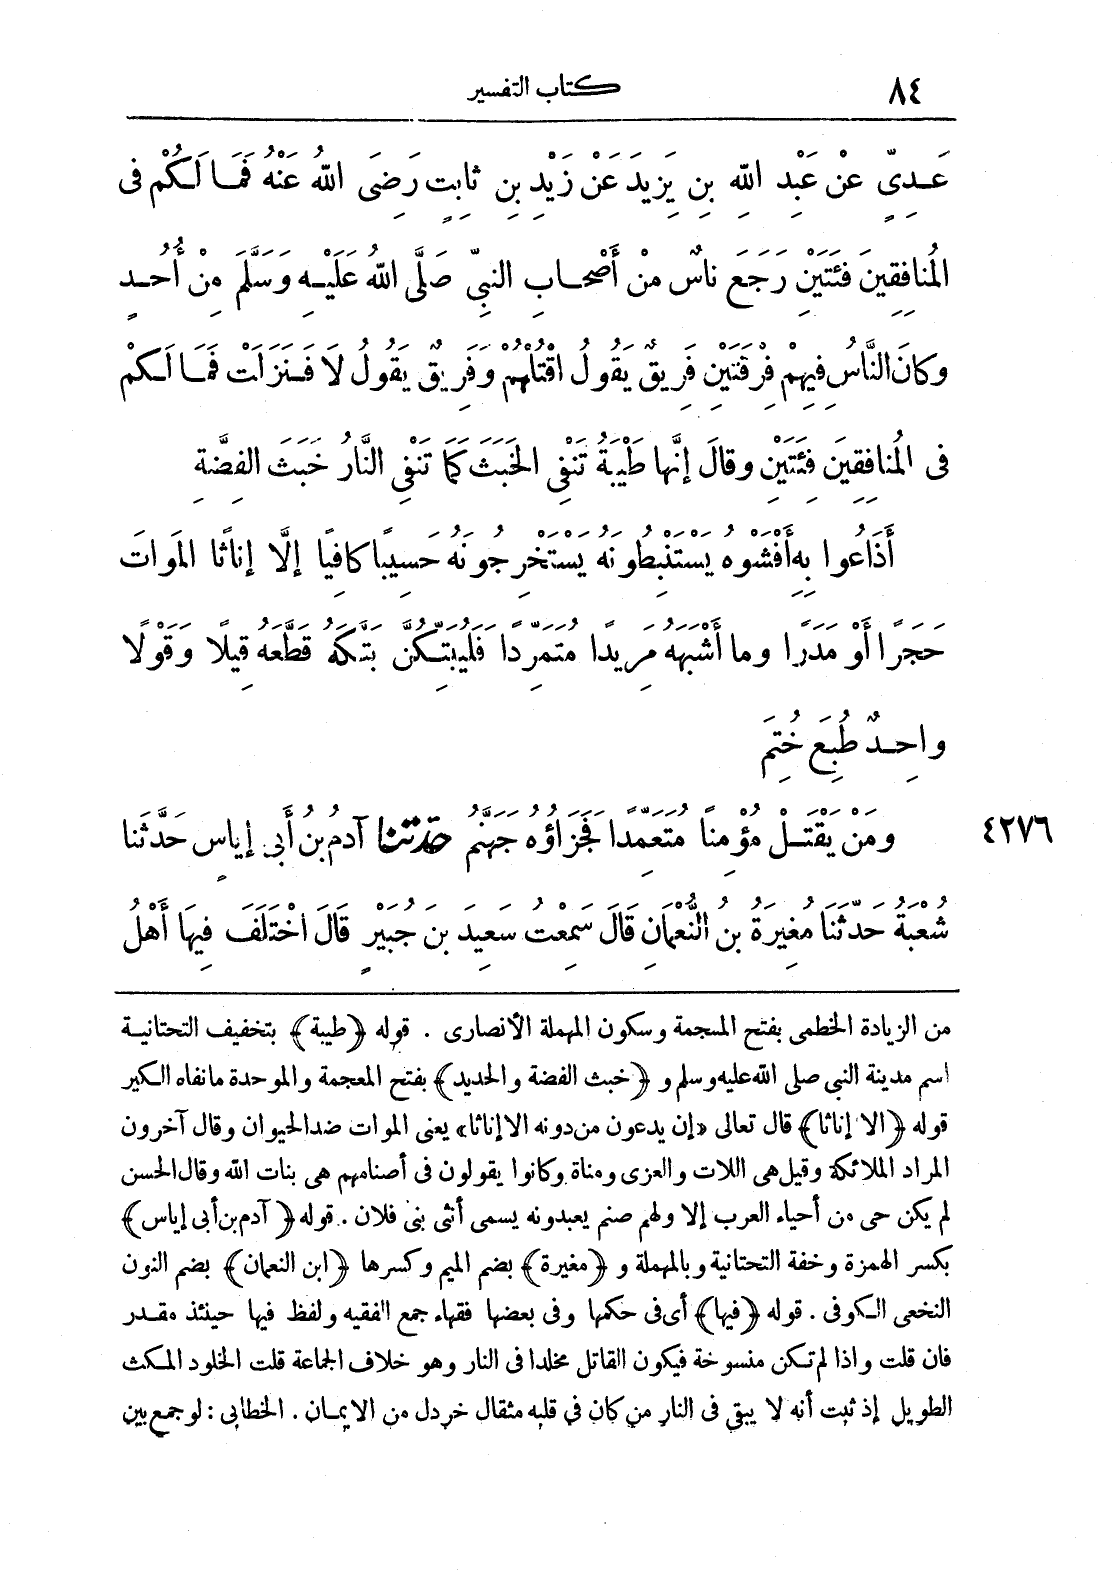 ٨٤
كتاب التفسير
عَدِىٍّ عَنْ عَبْدِ اللّٰهِ بِنِ يَزِيدَ عَنْ زَيْدِ بِنِ ثَابِتٍ رَضِىَ اللّٰهُ عَنْهُ فَمَا لَكُمْ فِى
الْمُنافِقِينَ فِئَتَيْنِ رَجَعَ ناسٌ مِنْ أَصْحابِ النَّبِىِّ صَلَّى اللّٰهُ عَلَيْهِ وَسَلَّمَ مِنْ أُحُدٍ
وكانَ النَّاسُ فِيهِمْ فِرْقَتَيْنِ فَرِيقٌ يَقُولُ اقْتُلْهُمْ وَفَرِيقٌ يَقُولُ لَا فَنَزَلَتْ فَمَا لَكُمْ
فِى الْمُنافِقِينَ فِئَتَيْنِ وقالَ إِنَّها طَيْبَةُ تَنْفِى الخَبَثَ كَمَا تَنْفِى النَّارُ خَبَثَ الفِضَّةِ
أَذَاعُوا بِهِ أَفْشَوْهُ يَسْتَنْبِطُونَهُ يَسْتَخْرِجُونَهُ حَسِيبًا كافِيًا إِلَّا إِناثًا المَواتَ
حَجَرًا أَوْ مَدَرًا وما أَشْبَهَهُ مَرِيدًا مُتَمَرِّدًا فَلَيُبَتِّكُنَّ بَتَّكَهُ قَطَّعَهُ قِيلًا وَقَوْلًا
واحِدٌ طُبِعَ خُتِمَ
٤٢٧٦ ومَنْ يَقْتُلْ مُؤْمِناً مُتَعَمِّدًا فَجَزَاؤُه جَهَنَّمُ حَدَّثَنَا آدَمُ بنُ أَبِى إِياسٍ حَدَّثَنا
شُعْبَةُ حَدَّثَنَا مُغِيرَةُ بن النُّعْمَانِ قَالَ سَمِعْت سَعِيدَ بنَ جُبَيْرٍ قَالَ اخْتَلَفَ فِيهَا أَهْلُ
من الزيادة الخطمى بفتح المعجمة وسكون المهملة الأنصارى . قوله ﴿طيبة﴾ بتخفيف التحتانية
اسم مدينة النبى صلى الله عليه وسلم و ﴿خبث الفضة والحديد﴾ بفتح المعجمة والموحدة مانفاه الكير
قوله ﴿الا إناثا﴾ قال تعالى «إن يدعون من دونه الا إناثا» يعنى الموات ضد الحيوان وقال آخرون
المراد الملائكة وقيل هى اللات والعزى ومناة وكانوا يقولون فى أصنامهم هى بنات الله وقال الحسن
لم يكن حى من أحياء العرب إلا ولهم صنم يعبدونه يسمى أنثى بنى فلان . قوله ﴿آدم بن أبى إياس﴾
بكسر الهمزة وخفة التحتانية وبالمهملة و ﴿مغيرة﴾ بضم الميم وكسرها ﴿ابن النعمان﴾ بضم النون
النخعى الكوفى . قوله ﴿فيها﴾ أى فى حكمها وفى بعضها فقهاء جمع الفقيه ولفظ فيها حينئذ مقدر
فان قلت واذا لم تكن منسوخة فيكون القاتل مخلدا فى النار وهو خلاف الجماعة قلت الخلود المكث
الطويل إذ ثبت أنه لا يبقى فى النار من كان في قلبه مثقال خردل من الايمان . الخطابى : لو جمع بين